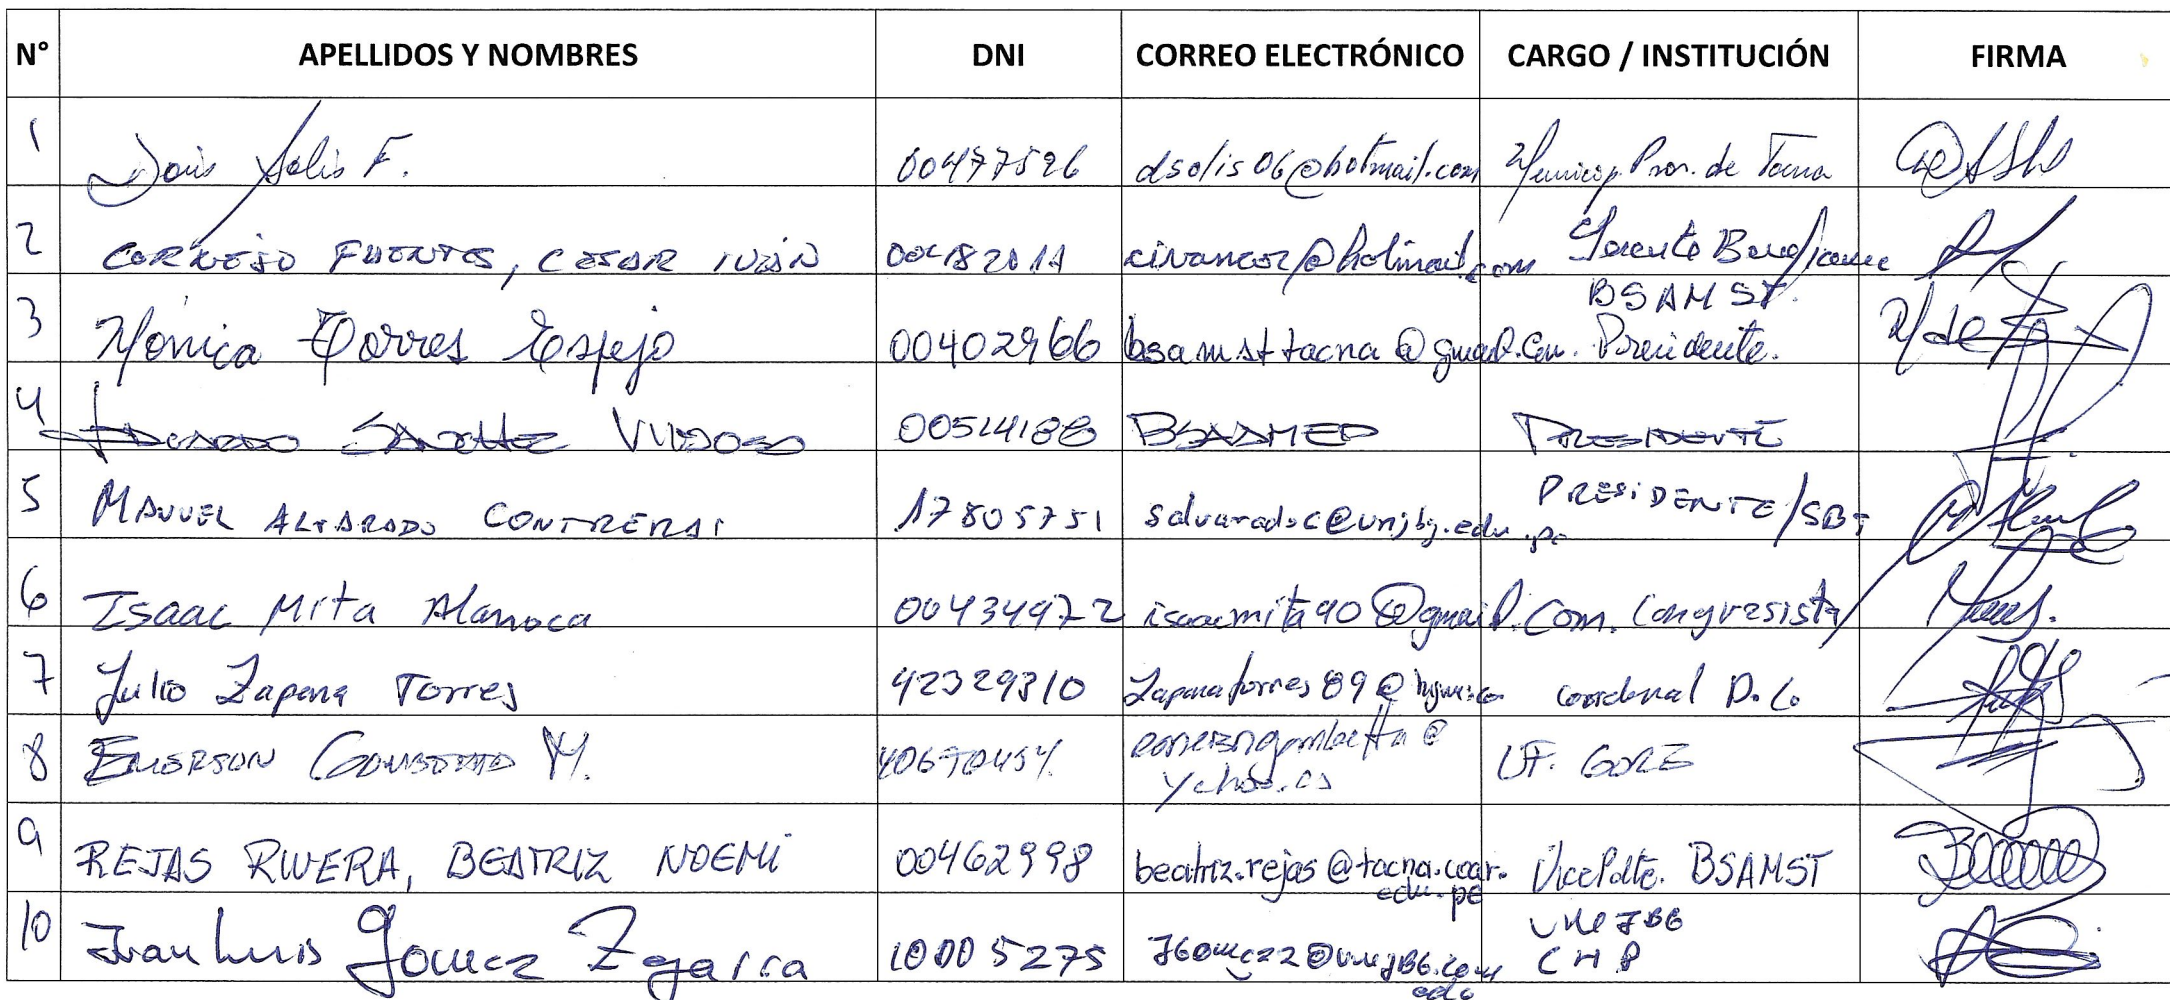 N° APELLIDOS Y NOMBRES DNI CORREO ELECTRÓNICO CARGO / INSTITUCIÓN FIRMA
1 Doris Solis F. 00477526 dsolis06@hotmail.com Municip. Prov. de Tacna
2 CORNEJO FUENTES, CESAR IVÁN 00482011 civancor@hotmail.com Gerente
BSAMST.
3 Mónica Torres Espejo 00402966 bsamsttacna@gmail.com. Presidente.
4 SANCHEZ 00514188 PRESIDENTE
5 MANUEL ALVARADO CONTRERAS 17805751 salvaradoc@unjbg.edu.pe PRESIDENTE/SBT
6 Isaac Mita Alanoca 00434972 isaacmita90@gmail.com. Congresista
7 Julio Zapana Torres 42329310
8 EMERSON M. UF. GORE
9 REJAS RIVERA, BEATRIZ NOEMI 00462998 beatriz.rejas@tacna.coar.edu.pe VicePdte. BSAMST
10 Juan Luis Gomez Zegarra 10005275 CHP